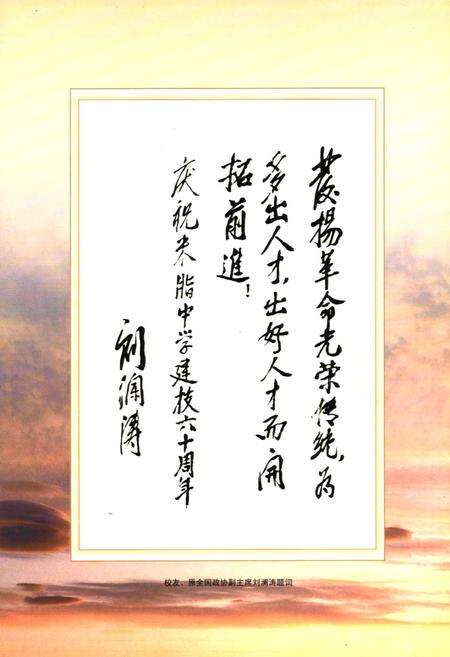 发揚革命光荣传統，为
多出人才，出好人才而開
拓前進！
庆祝米脂中学建校六十周年
刘澜涛
校友、原全国政协副主席刘澜涛题词